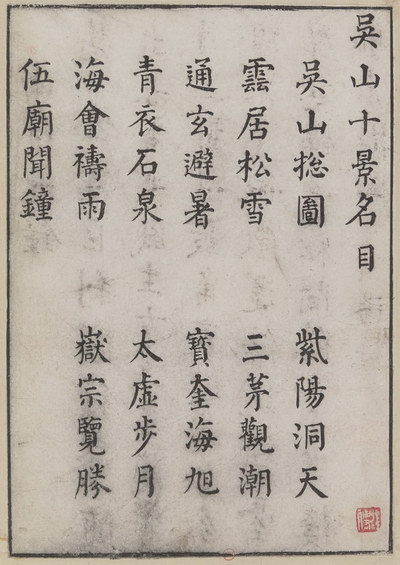 吳山十景名目
吳山捴圖
紫陽洞天
雲居松雪
三茅觀潮
通玄避暑
寶奎海旭
青衣石泉
太虛步月
海會禱雨
嶽宗覽勝
伍廟聞鐘